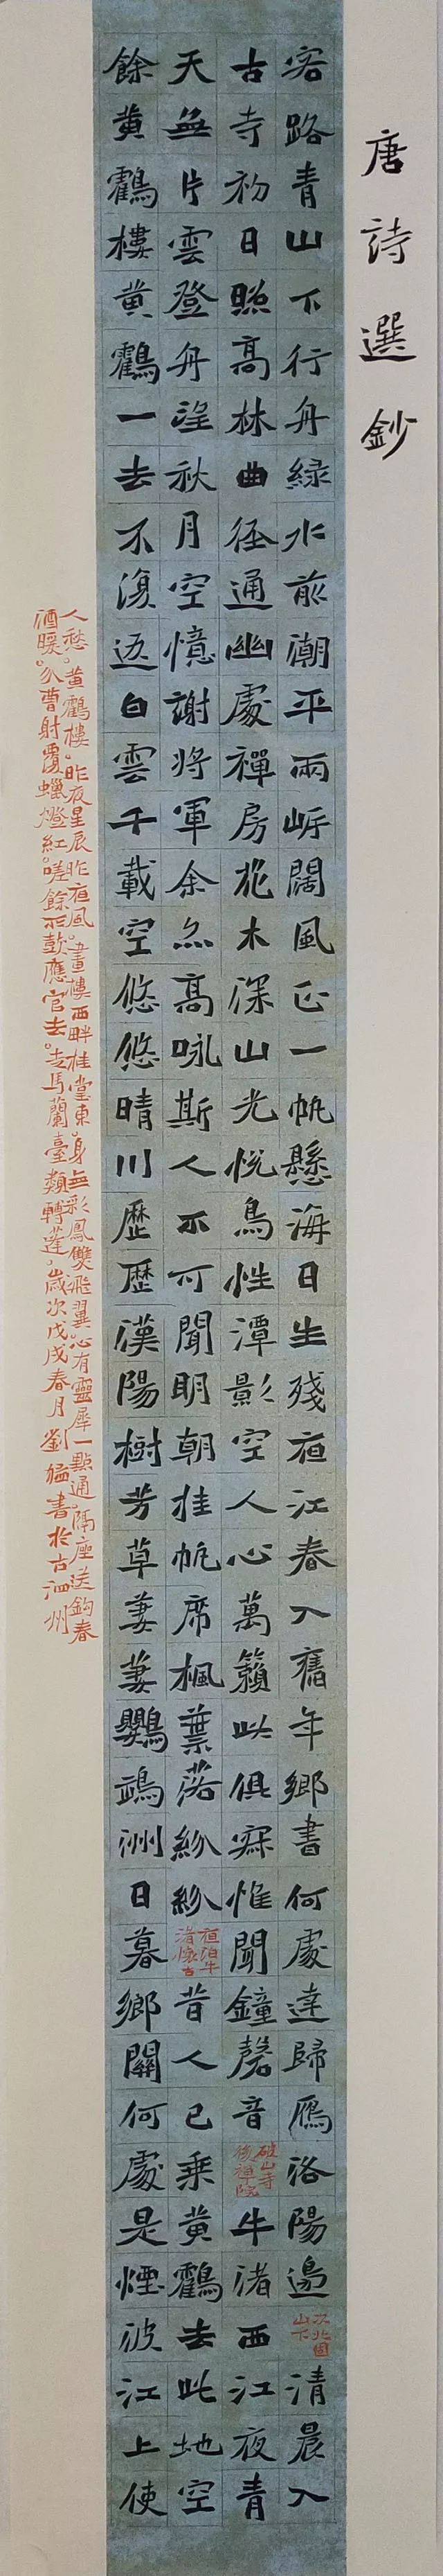 唐詩選鈔
客路青山下行舟緑水前潮平兩岸闊風正一帆懸海日生殘夜江春入舊年鄉書何處達歸鴈洛陽邉
次北固
山下
清晨入
古寺初日照高林曲徑通幽處禪房花木深山光悅鳥性潭影空人心萬籟此俱寂惟聞鐘磬音
破山寺
後禪院
牛渚西江夜青
天無片雲登舟望秋月空憶謝將軍余亦高咏斯人不可聞明朝挂帆席楓葉落紛紛
夜泊牛
渚懷古
昔人已乘黄鶴去此地空
餘黄鶴樓黄鶴一去不復返白雲千載空悠悠晴川歷歷漢陽樹芳草萋萋鸚鵡洲日暮鄉關何處是煙波江上使
人愁。黄鶴樓。昨夜星辰昨夜風。畫樓西畔桂堂東。身無彩鳳雙飛翼。心有靈犀一點通。隔座送鈎春
酒暖。分曹射覆蠟燈紅。嗟餘聽鼓應官去。走馬蘭臺類轉蓬。歲次戊戌春月劉猛書於古泗州